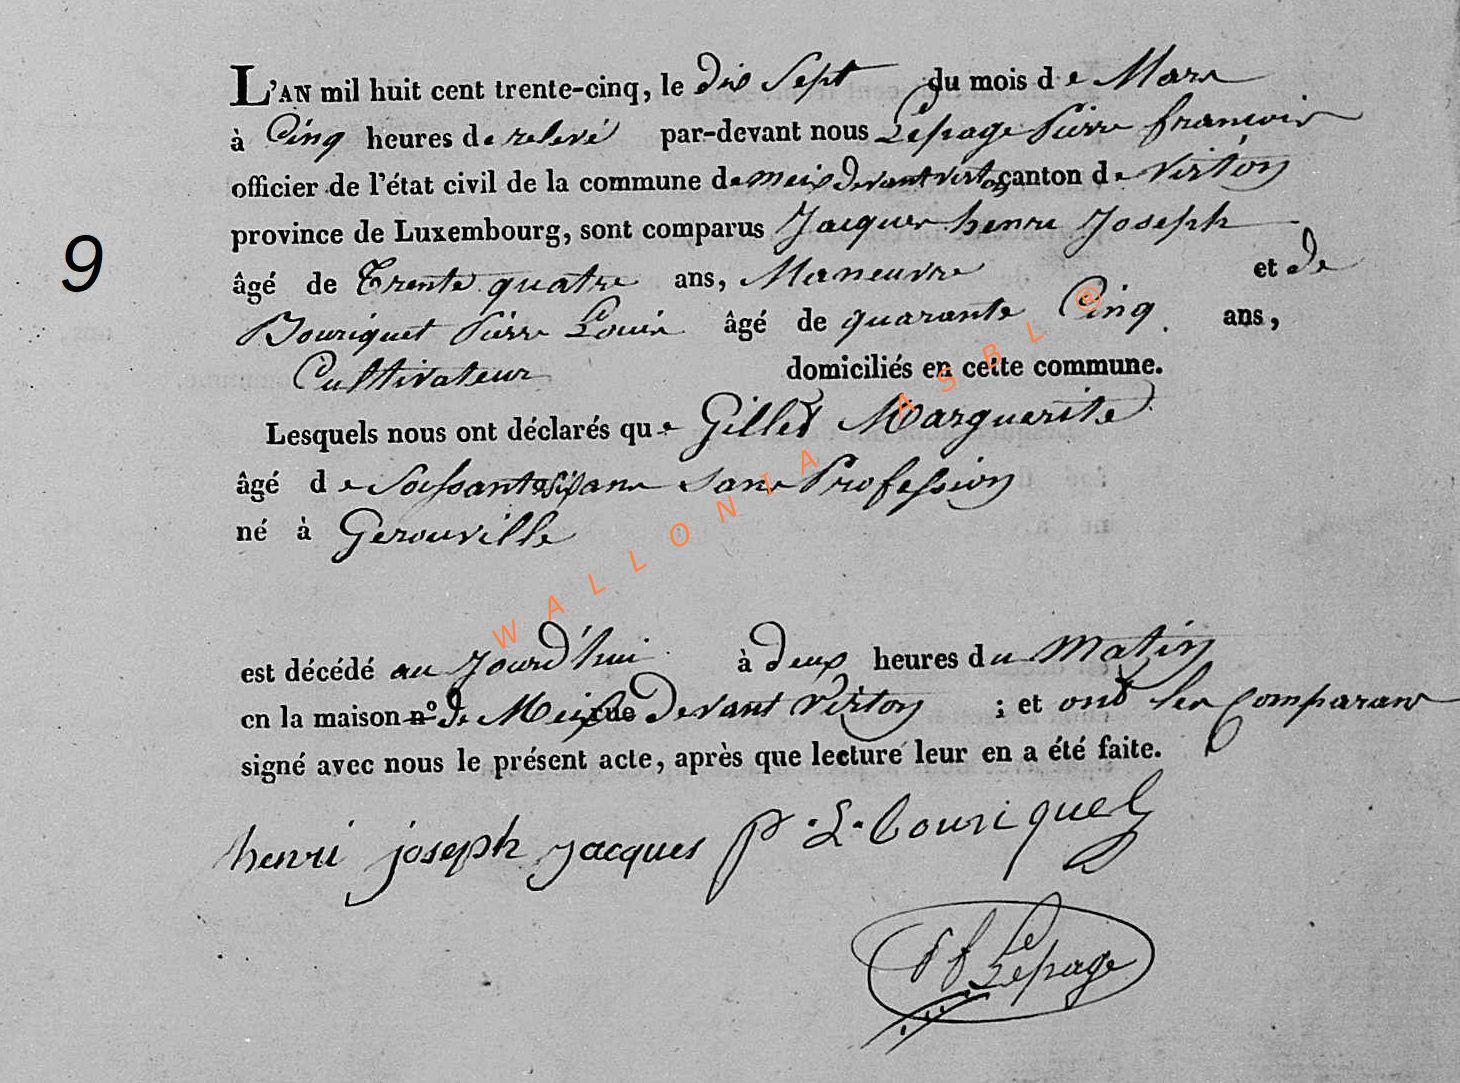 L'AN mil huit cent trente-cinq, le dix Sept du mois de Mars
à Cinq heures de relevé par-devant nous Lepage Pierre françois
officier de l'état civil de la commune de meix devant virton canton de Virton
province de Luxembourg, sont comparus Jacques henri Joseph
9
âgé de Trente quatre ans, Maneuvre et de
Bouriquet Pierre Louis âgé de quarante Cinq ans,
Cultivateur domiciliés en cette commune.
Lesquels nous ont déclarés que Gillet Marguerite
âgé de Soissante six ans sans Profession
né à Gerouville
WALLONIA ASBL @
est décédé au jourd'hui à deux heures du Matin
en la maison nº de Meix rue Devant Virton ; et ont les Comparans
signé avec nous le présent acte, après que lecture leur en a été faite.
henri joseph jacques P. L. Bouriquet
Pf Lepage